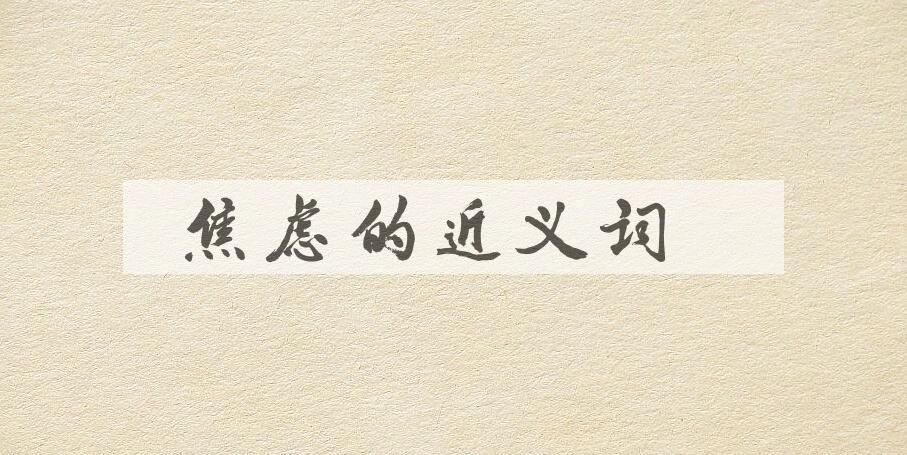 焦虑的近义词